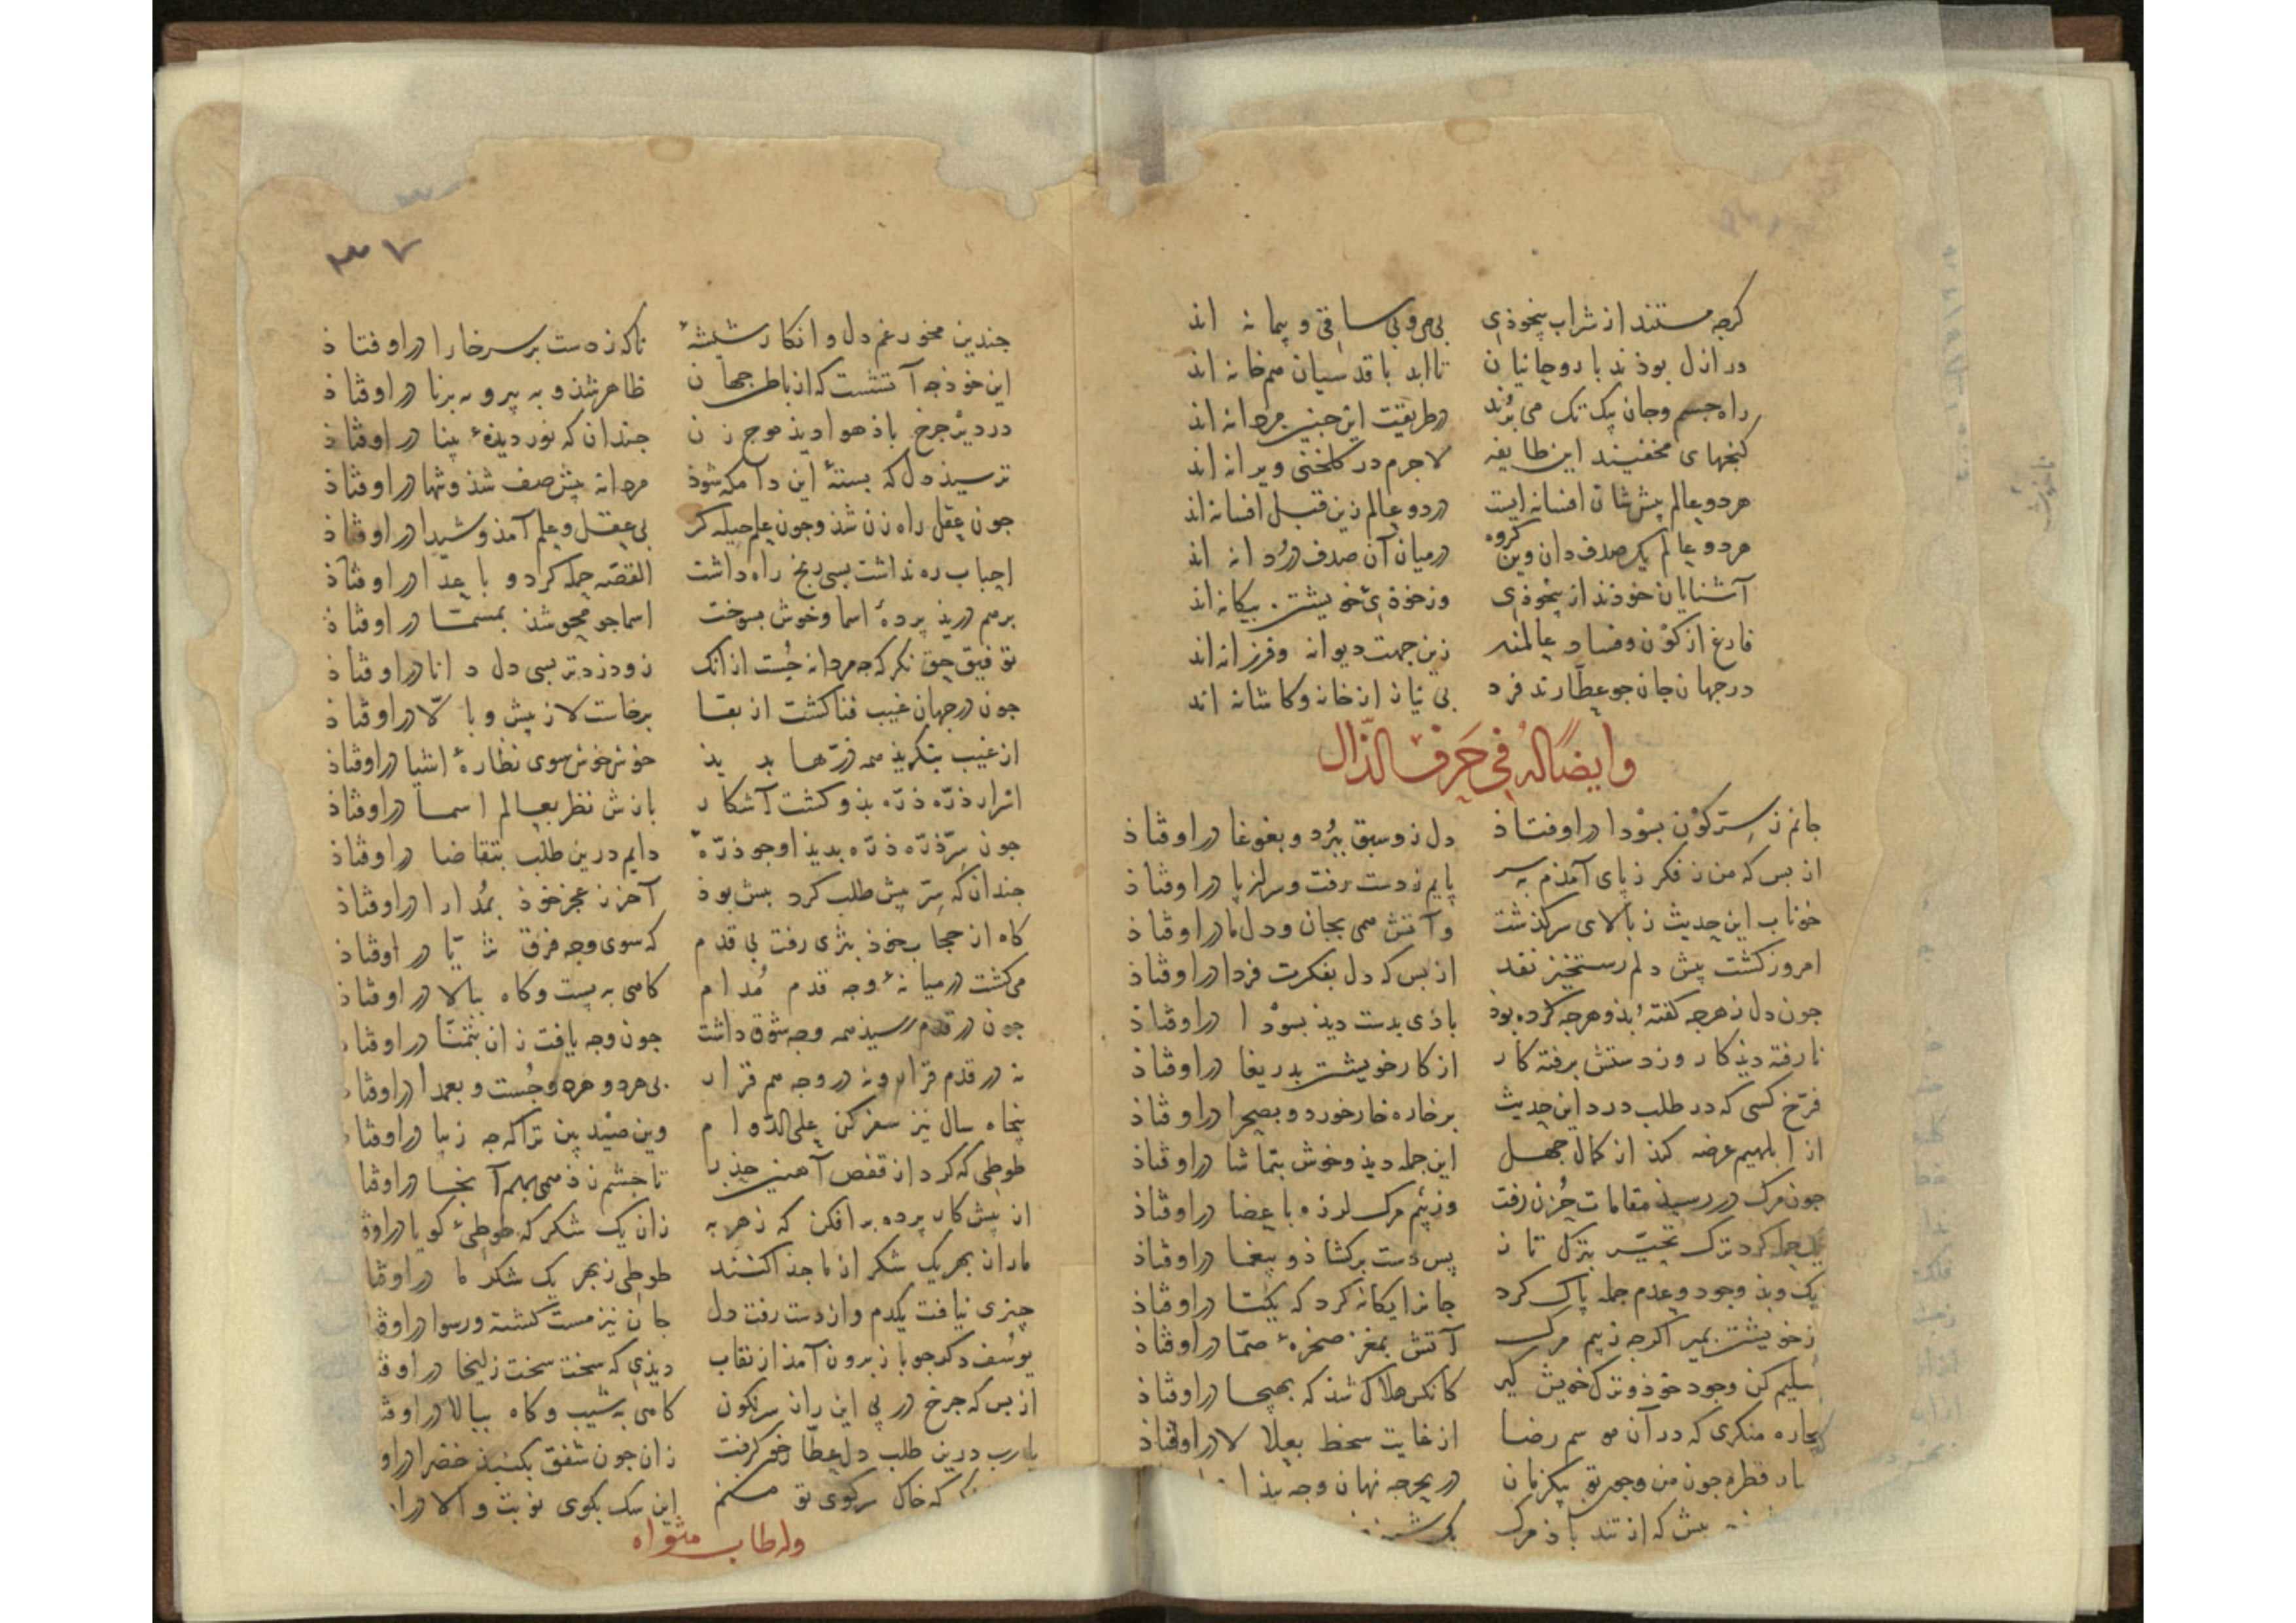 کرجه مستند از شراب بیخوذی بی می و بی ساقی و پیمانه اند
در ازل بوذند با روحانیان تا ابد با قدسیان هم خانه اند
راه جسم و جان بیک تک می برند در طریقت این جنین مردانه اند
کنجهای مخفیند این طایفه لاجرم در کلخنی ویرانه اند
هر دو عالم پیش شان افسانه ایست در دو عالم زین قبل افسانه اند
هر دو عالم یک صدف دان وین کروه در میان آن صدف دردانه اند
آشنایان خوذند از بیخوذی وز خوذی خویشتن بیکانه اند
فارغ از کون و فساد عالمند زین جهت دیوانه و فرزانه اند
در جهان جان جو عطارند فرد بی نیاز از خانه و کاشانه اند
وایضاً له فی حرف الذّال
جانم ز سرّ کون بسودا در اوفتاذ دل زو سبق ببرد و بغوغا در اوفتاذ
از بس که من ز فکر ز پای آمذم بسر پایم ز دست رفت و سر از پا در اوفتاذ
خوناب این حدیث ز بالای سر کذشت و آتش همی بجان و دل ما در اوفتاذ
امروز کشت پیش دلم رستخیز نقد از بس که دل بفکرت فردا در اوفتاذ
جون دل ز هرجه کفته بذ و هرجه کرده بوذ باذی بدست دیذ بسودا در اوفتاذ
نارفته دیذ کار وز دستش برفته کار از کار خویشتن بدریغا در اوفتاذ
فرّخ کسی که در طلب درد این حدیث بر خاره خار خورد و بصحرا در اوفتاذ
از ابلهیم عرضه کنذ از کمال جهل این جمله دیذ و خوش بتماشا در اوفتاذ
جون مرک در رسیذ مقامات حزن رفت وز بیم مرک لرزه باعضا در اوفتاذ
یک حمله کرد ترک تحیّر بترک تاز پس دست برکشاذ و بیغما در اوفتاذ
یک و بذ وجود و عدم جمله پاک کرد جانرا یکانه کرد که یکتا در اوفتاذ
ز خویشتن بمیر اکرجه ز بیم مرک آتش بمغز صخرهٔ صمّا در اوفتاذ
سلیم کن وجود خوذ و ترک خویش کیر کانکس هلاک شذ که بهیجا در اوفتاذ
بیجاره منکری که در آن موسم رضا از غایت سخط بعلالا در اوفتاذ
قطره جون من وجون تو بیکزمان در بحر جه نهان وجه
بیش که از تند باذ مرک
۳۷
جندین مخور غم دل و انکار شیشهٔ ناکه ز دست بر سر خارا در اوفتاذ
این خوذ جه آتشست که از باطن جهان ظاهر شذ و به پیر و به برنا در اوفتاذ
در دیر جرخ باذ هوا دیذ موج زن جندان که نور دیذهٔ بینا در اوفتاذ
ترسیذ دل که بستهٔ این دامکه شوذ مردانه پیش صف شذ و تنها در اوفتاذ
جون عقل راه زن شذ و جون علم حیله کر بی عقل و علم آمذ و شیدا در اوفتاذ
احباب ره نداشت بسی رنج راه داشت القصّه حمله کرد و باعدا در اوفتاذ
بر هم دریذ پردهٔ اسما و خوش بسوخت اسما جو محو شذ بمسمّا در اوفتاذ
توفیق حق نکر که جه مردانه جُست از انک زود زدتر بسی دل دانا در اوفتاذ
جون در جهان غیب فنا کشت از بقا برخاست لا ز پیش و بالّا در اوفتاذ
از غیب بنکریذ همه ذرّها بدیذ خوش خوش سوی نظارهٔ اشیا در اوفتاذ
اسرار ذرّه ذرّه بذو کشت آشکار بازش نظر بعالم اسما در اوفتاذ
جون سرّ ذرّه ذرّه بدیذ او جو ذرّهٔ دایم درین طلب بتقاضا در اوفتاذ
جندان که سِرّ بیش طلب کرد بیش بوذ آخر ز عجز خوذ بمُدارا در اوفتاذ
کاه از حجاب خوذ بثری رفت بی قدم که سوی وجه فرق ثریّا در اوفتاذ
می کشت در میانهٔ وجه قدم مُدام کاهی به پست و کاه ببالا در اوفتاذ
جون در قدم رسیذ همه وجه شوق داشت جون وجه یافت زان بتمنّا در اوفتا
نه در قدم قرار و نه در وجه هم قرار بی هر دو هر دو جُست و بعمدا در اوفتا
پنجاه سال نیز سفر کن علی الدّوام وین صیْد بین ترا که جه زیبا در اوفتا
طوطی که کرد از قفص آهنین حذر تا جشم زذ همی بهم آنجا در اوفتا
از پیش کار پرده بر افکن که زهر به زان یک شکر که طوطی کویا در اوفـ
ما را از بهر یک شکر از ما جذا کنند طوطی ز بهر یک شکر ما در اوفتا
چیزی نیافت یکدم و از دست رفت دل جان نیز مست کشته و رسوا در اوفـ
یوسُف دکر جو باز برون آمذ از نقاب دیذی که سخت سخت زلیخا در اوفـ
از بس که جرخ در پی این راز سرنکون کاهی بشیب و کاه ببالا در اوفـ
یارب درین طلب دل عطّار خون کرفت زان جون شفق بکنبذ خضرا در او
که خاک سرکوی تو منم این سک بکوی تو بتولا در ا
وله طاب مثواه